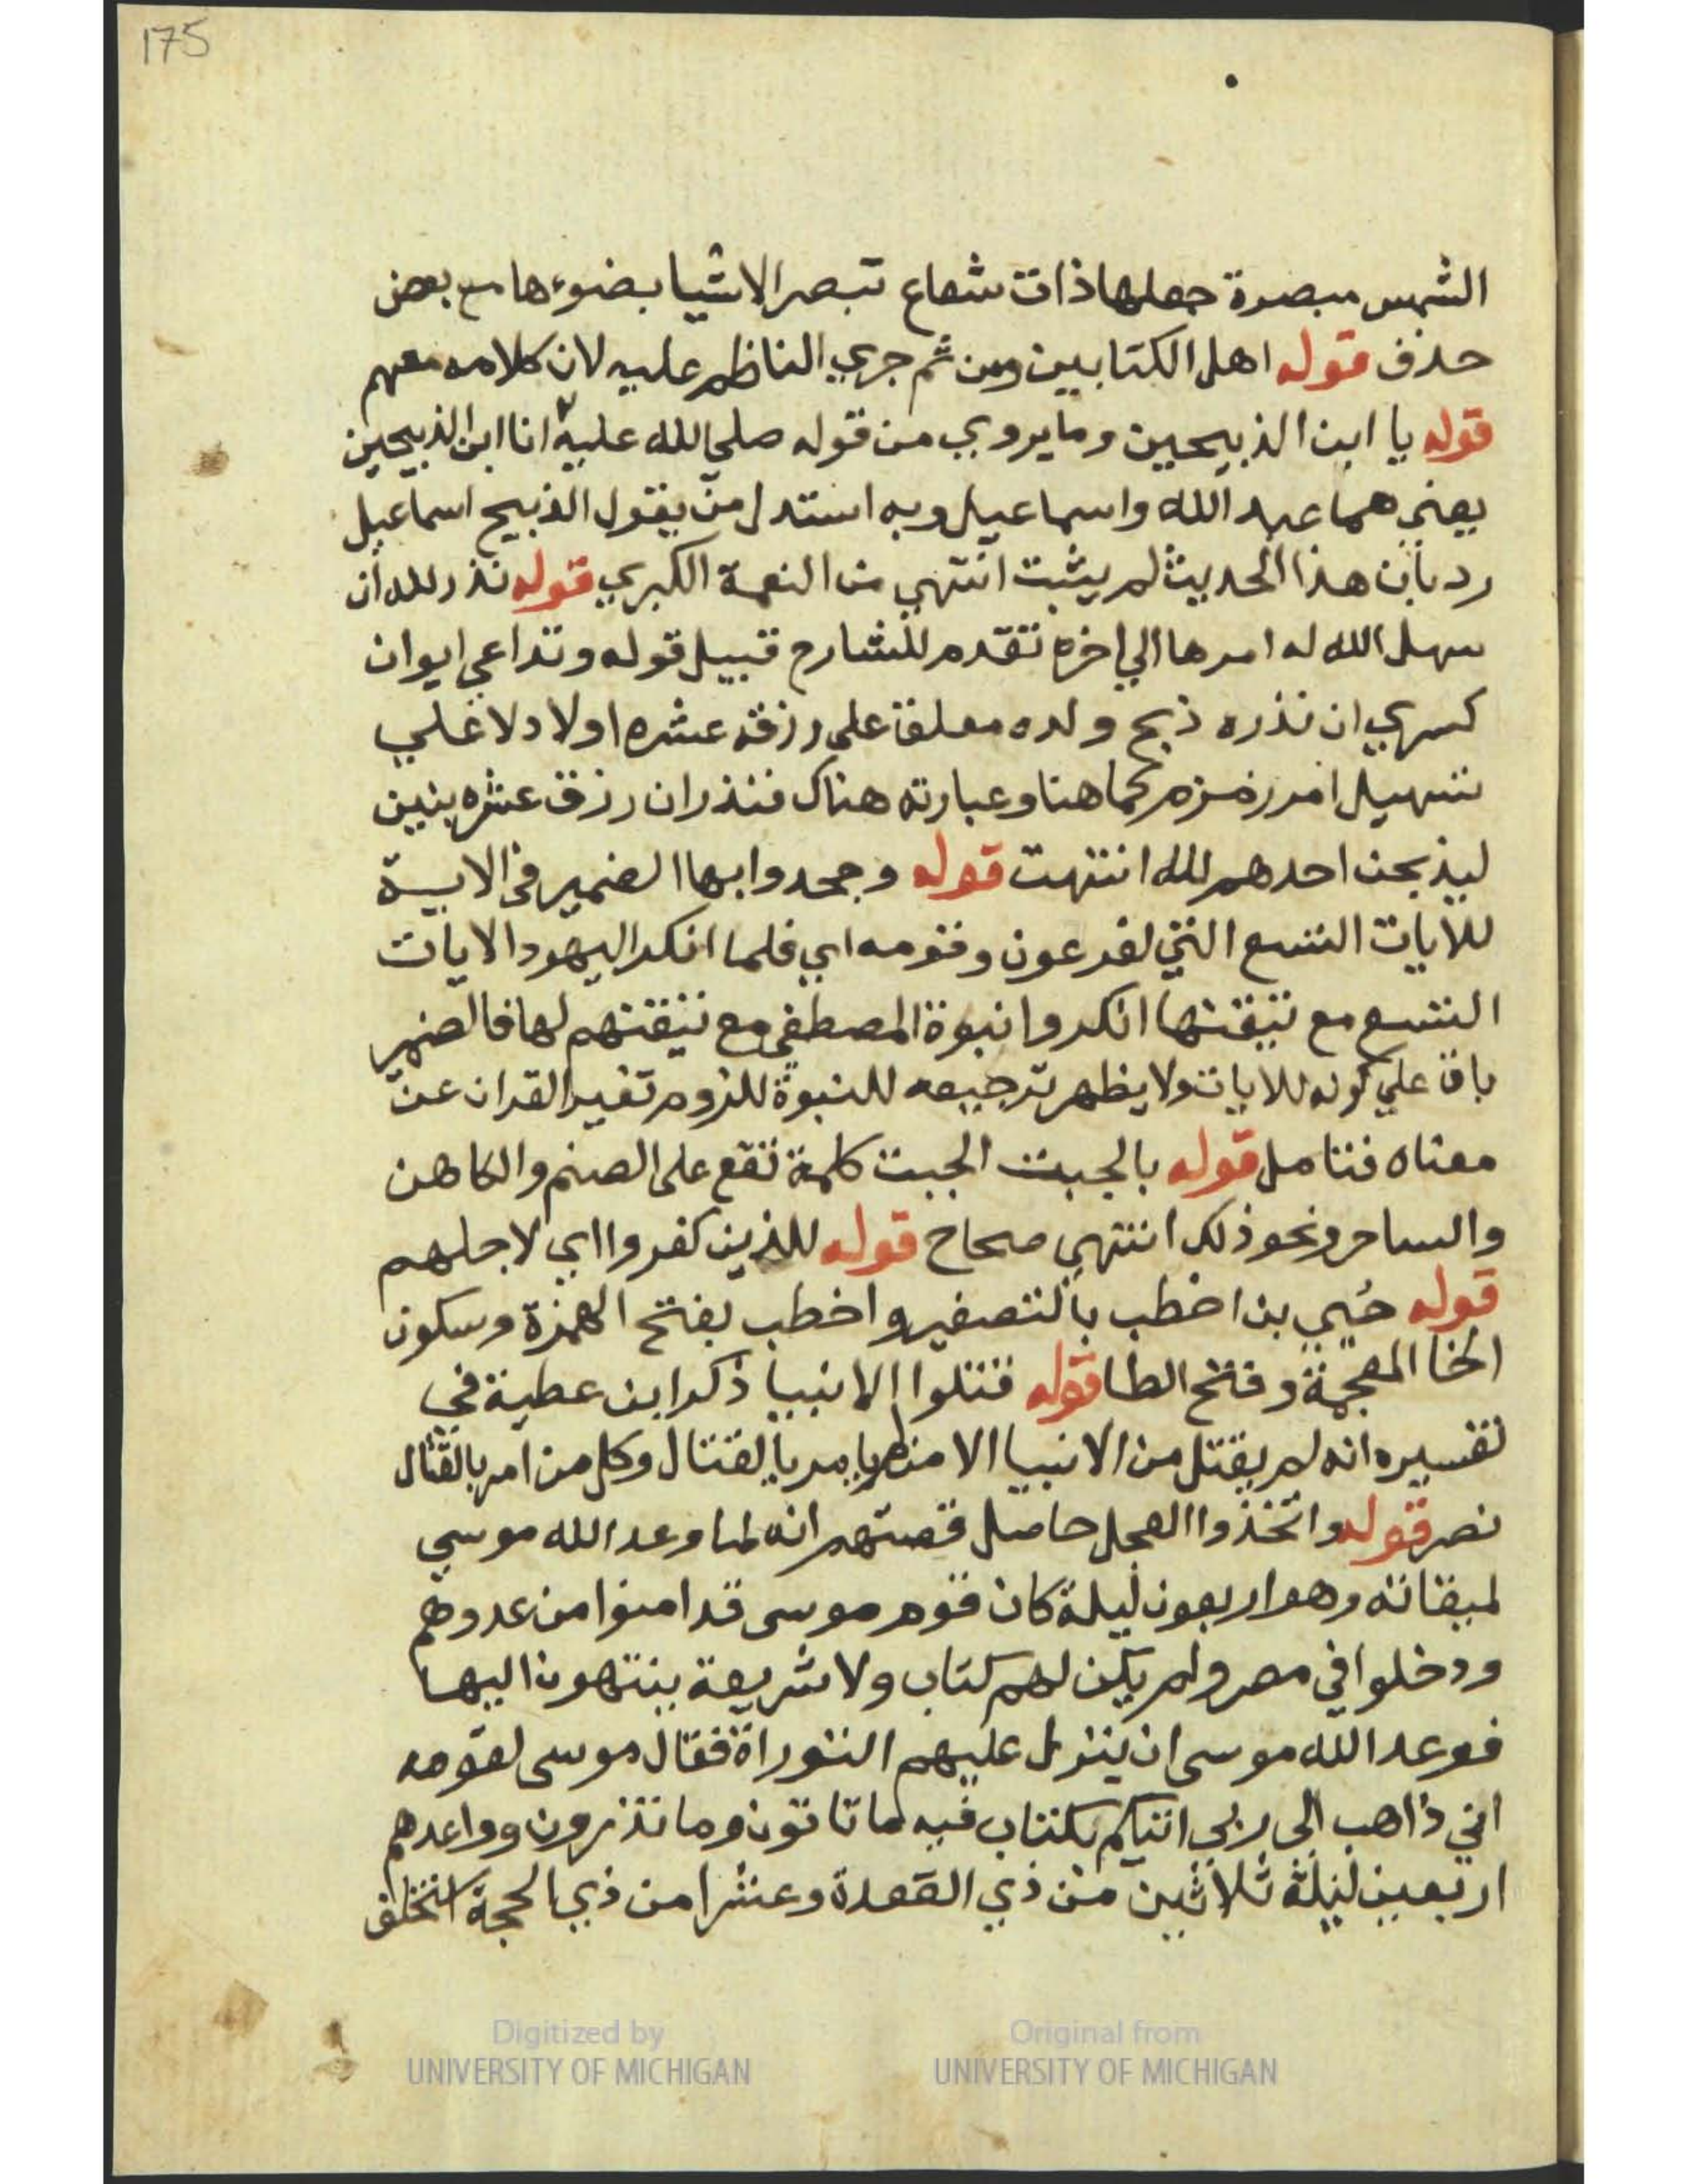 175
الشمس مبصرة جعلها ذات شعاع تبصر الاشيا بضوءها مع بعض
حذف قوله اهل الكتابين ومن ثم جري الناظم عليه لان كلامه معهم
قوله يا ابن الذبيحين وما يروي من قوله صلي الله عليه انا ابن الذبيحين
يعني هما عبد الله واسماعيل وبه استدل من يقول الذبيح اسماعيل
رد بان هذا الحديث لم يثبت انتهي من النعمة الكبري قوله نذر لله ان
سهل الله له امرها الي اخره تقدم للشارح قبيل قوله وتداعي ايوان
كسري ان نذره ذبح ولده معلق علي رزقه عشره اولاد لا علي
تسهيل امر زمزم كما هنا وعبارته هناك فنذر ان رزق عشره بنين
ليذبحن احدهم لله انتهت قوله وجحدوا بها الضمير في الاية
للايات التسع التي لفرعون وقومه اي فلما انكر اليهود الايات
التسع مع تيقنها انكروا نبوة المصطفي مع تيقنهم لها فالضمير
باق علي كونه للايات ولا يظهر ترجيعه للنبوة للزوم تغير القران عن
معناه فتامل قوله بالجبت الجبت كلمة تقع على الصنم والكاهن
والساحر ونحو ذلك انتهي صحاح قوله للذين كفروا اي لاجلهم
قوله حُيي بن اخطب بالتصغير واخطب بفتح الهمزة وسكون
الخا المعجمة وفتح الطا قوله قتلوا الانبيا ذكر ابن عطية في
تفسيره انه لم يقتل من الانبيا الا من لم يامر بالقتال وكل من امر بالقتال
نصر قوله واتخذوا العجل حاصل قصتهم انه لما وعد الله موسي
لميقاته وهو اربعون ليلة كان قوم موسى قد امنوا من عدوهم
ودخلوا في مصر ولم يكن لهم كتاب ولا شريعة ينتهون اليها
فوعد الله موسى ان ينزل عليهم التوراة فقال موسى لقومه
اني ذاهب الى ربي اتيكم بكتاب فيه ما تاتون وما تذرون وواعدهم
اربعين ليلة ثلاثين من ذي القعدة وعشرا من ذي الحجة
Digitized by
UNIVERSITY OF MICHIGAN
Original from
UNIVERSITY OF MICHIGAN